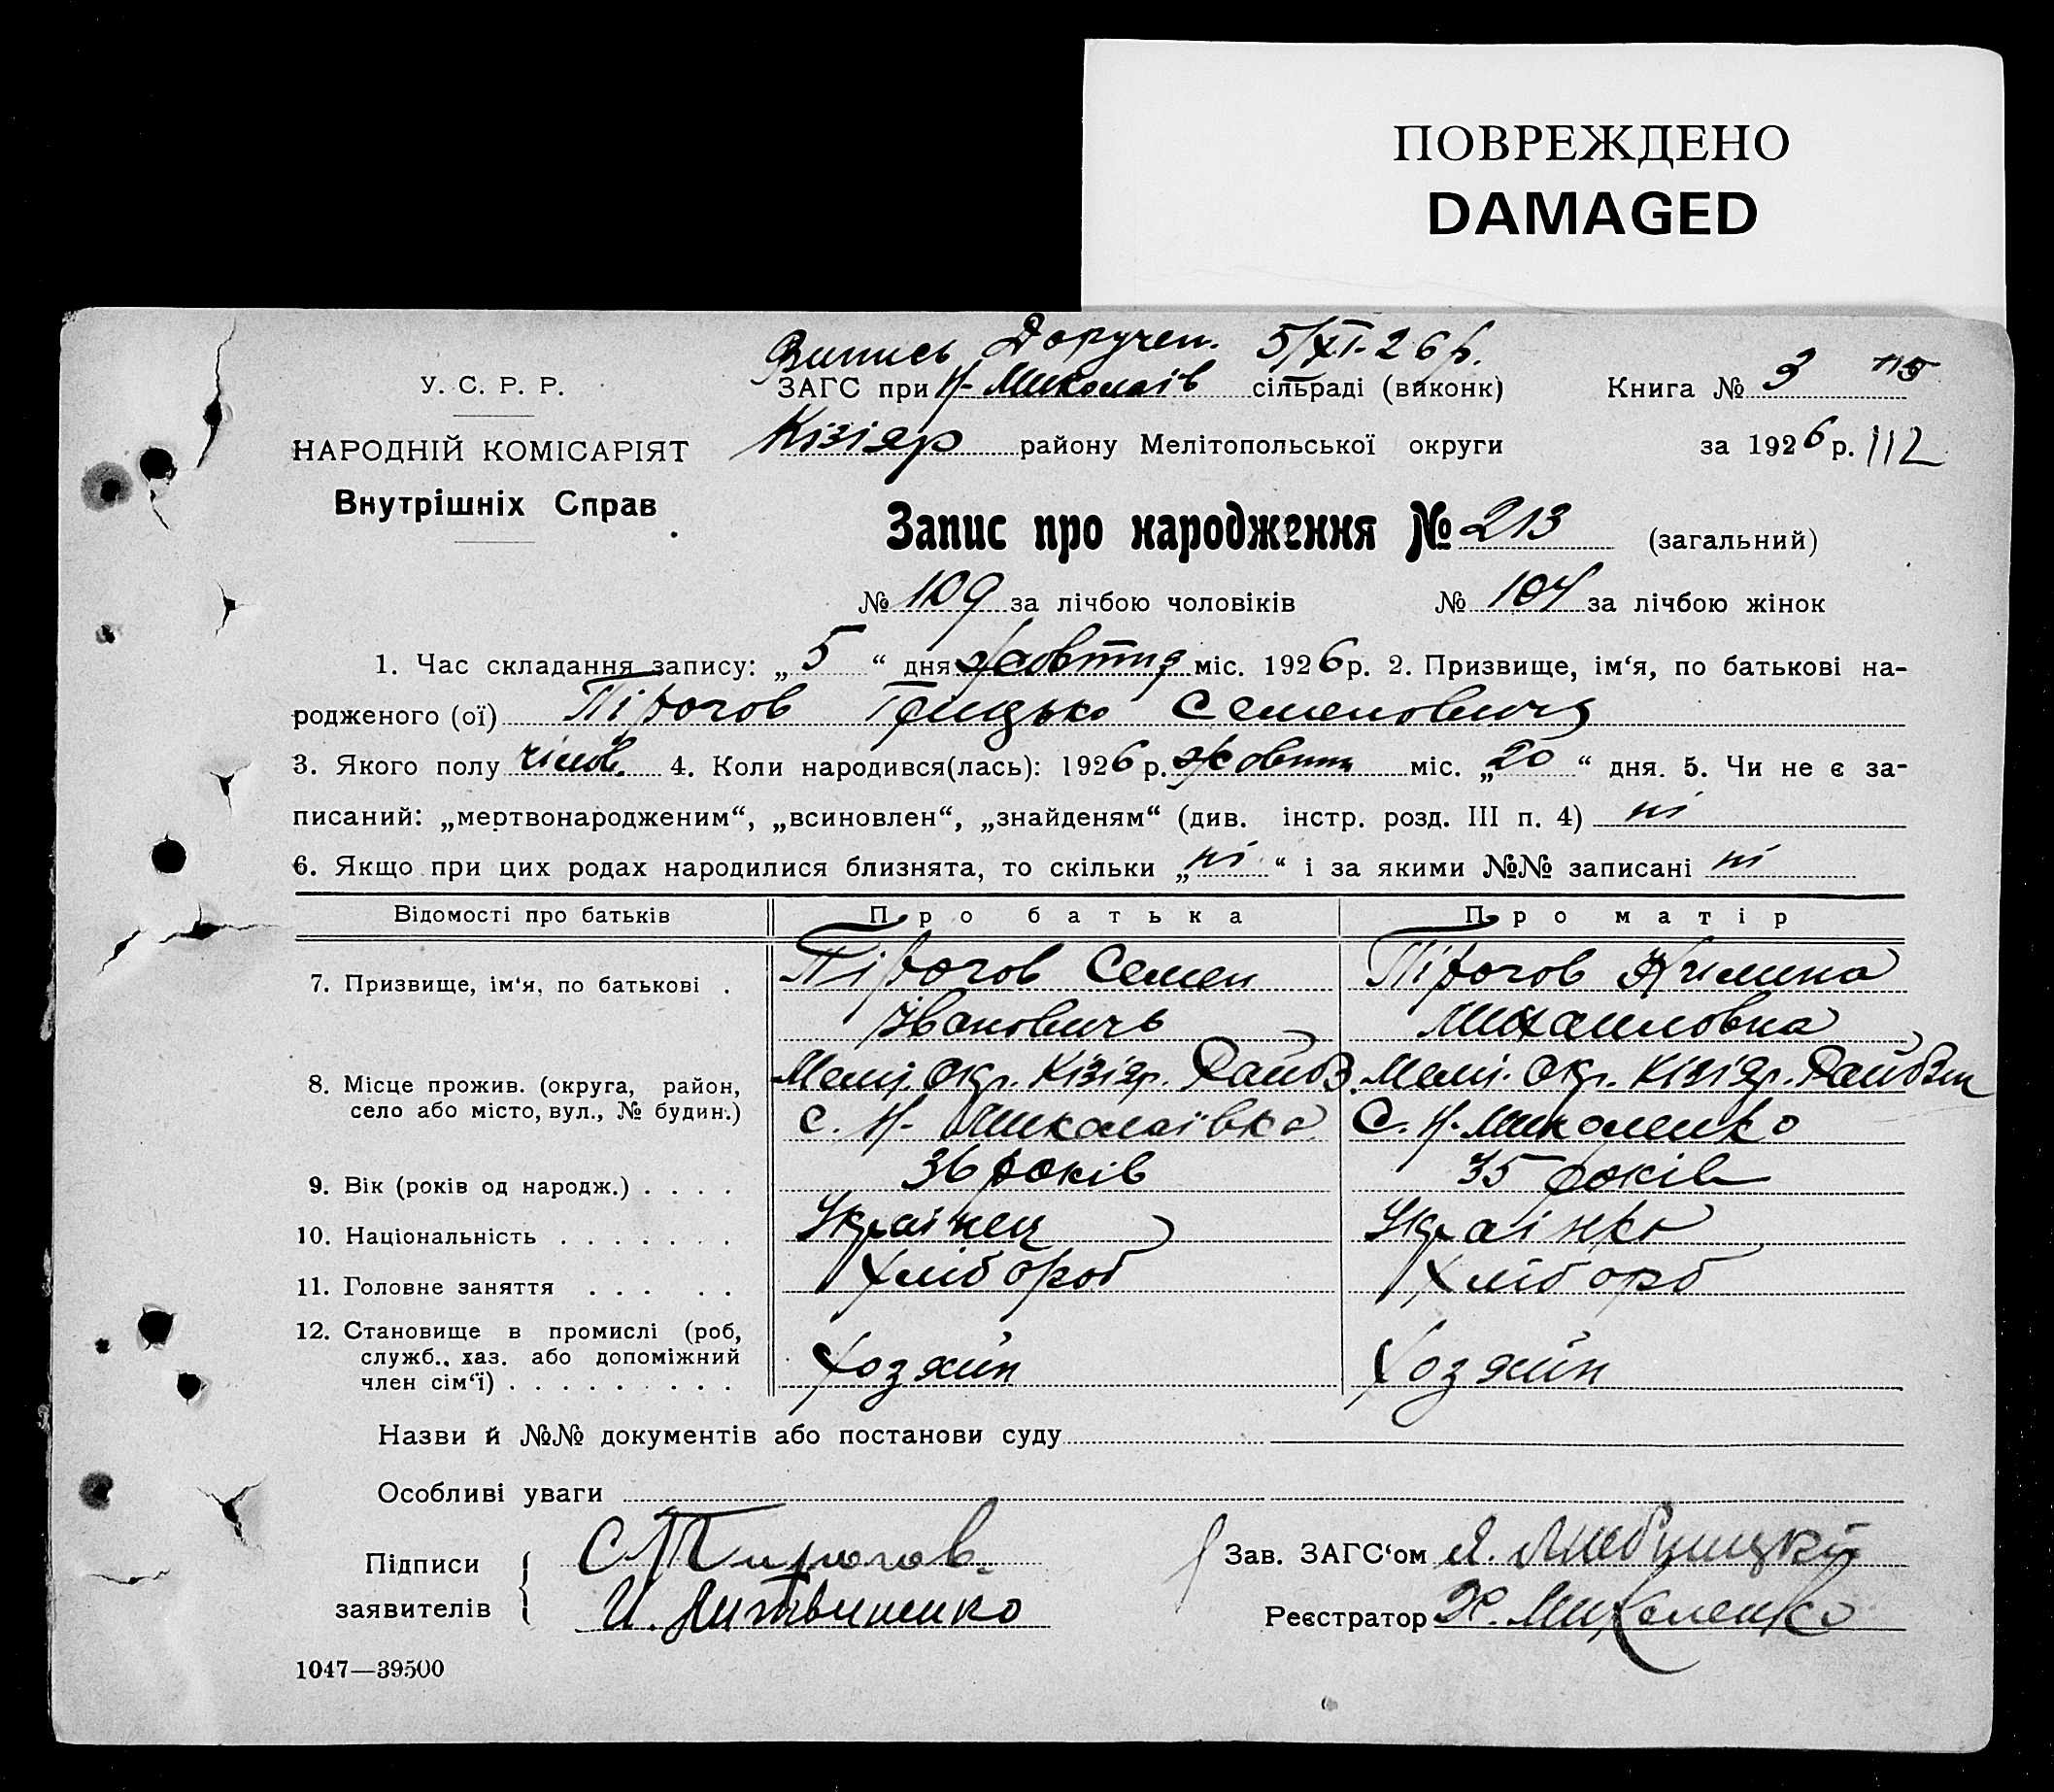 ПОВРЕЖДЕНО
DAMAGED
Випись Доручен. 5/XI-26 р.
У. С. Р. Р. ЗАГС при Н-Миколаів сільраді (виконк) Книга № 3 115
НАРОДНІЙ КОМІСАРІЯТ Кізіяр району Мелітопольської округи за 1926 р. 112
Внутрішніх Справ
Запис про народження № 213 (загальний)
№ 109 за лічбою чоловіків № 104 за лічбою жінок
1. Час складання запису: „ 5 “ дня жовтня міс. 1926 р. 2. Призвище, ім‘я, по батькові на-
родженого (ої) Пірогов Грицько Семеновичя
3. Якого полу чілов. 4. Коли народився(лась): 1926 р. жовтня міс. „ 20 “ дня. 5. Чи не є за-
писаний: „мертвонародженим“, „всиновлен“, „знайденям“ (див. інстр. розд. III п. 4) ні
6. Якщо при цих родах народилися близнята, то скільки „ ні “ і за якими №№ записані ні
Відомості про батьків Про батька Про матір
7. Призвище, ім‘я, по батькові . Пірогов Семен Пірогов
Івановичь Михаиловна
8. Місце прожив. (округа, район, Мелі. Окр. Кізіяр. Мелі. Окр. Кізіяр.
село або місто, вул., № будин.) с. Н-Миколаівка С. Н-Миколенко
9. Вік (років од народж.) . . . . 36 років 35 років
10. Національність . . . . . . . Украінец Украінка
11. Головне заняття . . . . . Хлібороб Хліборб
12. Становище в промислі (роб,
служб., хаз. або допоміжний Хозяин Хозяин
член сім‘ї) . . . . . . . . .
Назви й №№ документів або постанови суду
Особливі уваги
Підписи С Пирогов. Зав. ЗАГС‘ом Я.
заявителів И. Литвиненко Реєстратор Х. Михаленко
1047—39500